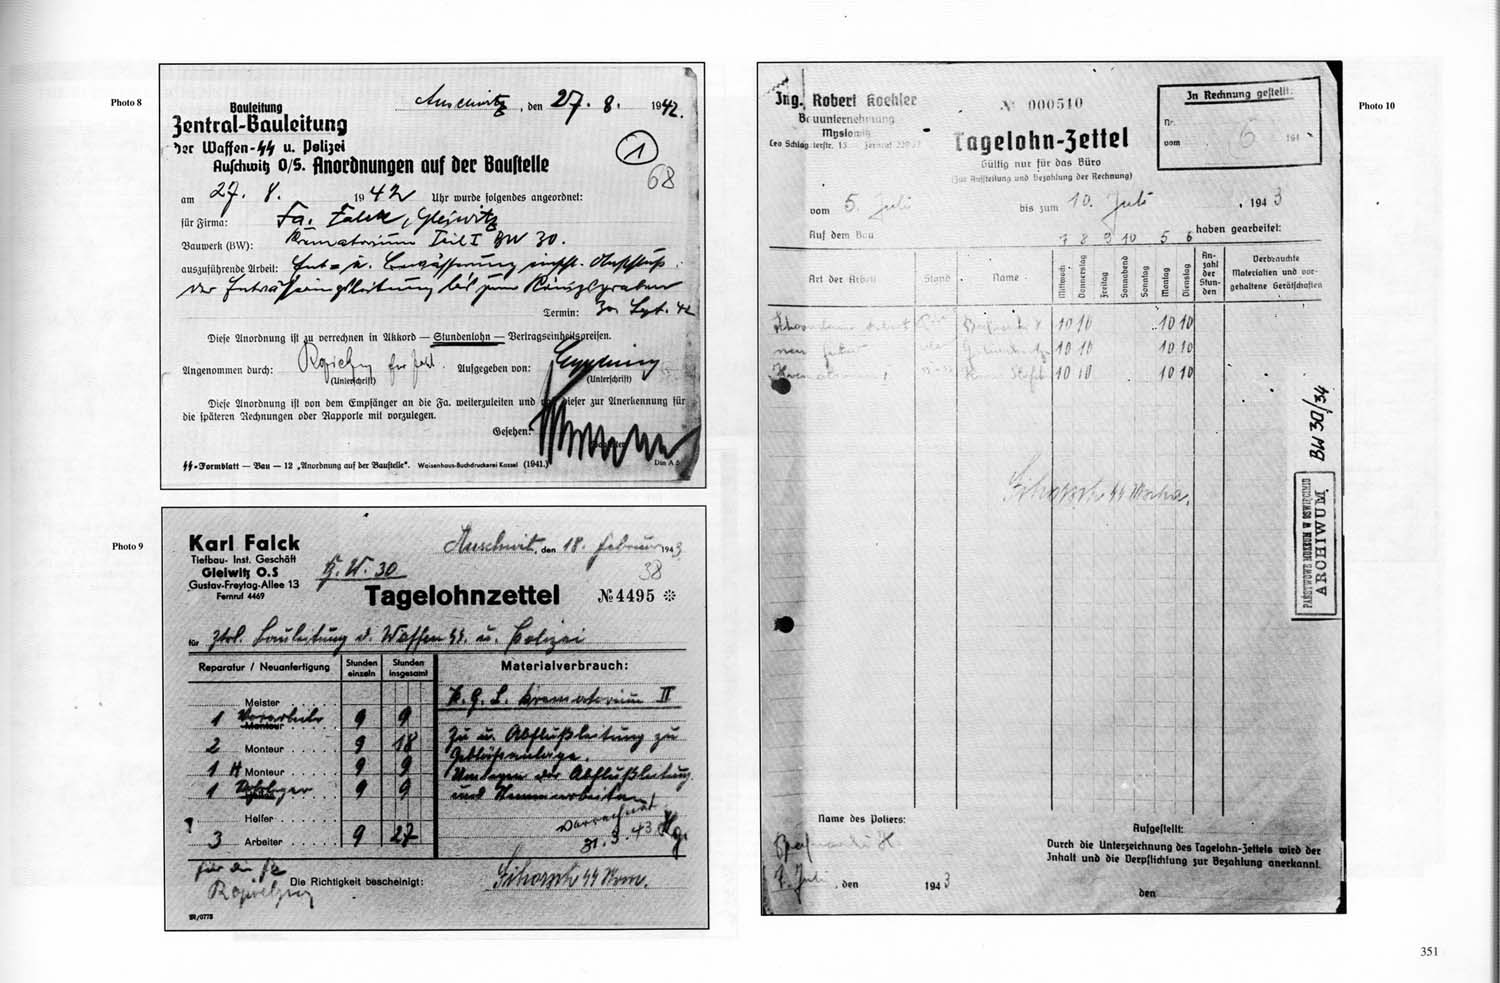 Photo 8
Bauleitung
Zentral-Bauleitung
der Waffen-SS u. Polizei
Auschwitz O/S.
Auschwitz, den 27. 8. 1942.
1
68
Anordnungen auf der Baustelle
am 27. 8. 1942 Uhr wurde folgendes angeordnet:
für Firma: Fa. Falck, Gleiwitz
Bauwerk (BW): Krematorium Teil I BW 30.
auszuführende Arbeit: Ent- u. Bewässerung einschl. Anschluß
der Entwässerungsleitung bis zum Königsgraben
Termin: 30 Sept. 42
Diese Anordnung ist zu verrechnen in Akkord — Stundenlohn — Vertragseinheitspreisen.
Angenommen durch: Aufgegeben von:
(Unterschrift) (Unterschrift)
Diese Anordnung ist von dem Empfänger an die Fa. weiterzuleiten und von dieser zur Anerkennung für
die späteren Rechnungen oder Rapporte mit vorzulegen.
Gesehen:
SS-Formblatt — Bau — 12 „Anordnung auf der Baustelle“. Waisenhaus-Buchdruckerei Kassel (1941.) Din A 5
Photo 9
Karl Falck
Tiefbau- Inst. Geschäft
Gleiwitz O.S
Gustav-Freytag-Allee 13
Fernruf 4469
Auschwitz, den 18. Februar 1943
B. W. 30
38
Tagelohnzettel № 4495
für Ztrl. Bauleitung d. Waffen SS. u. Polizei
Reparatur / Neuanfertigung Stunden einzeln Stunden insgesamt Materialverbrauch:
Meister
1 Vorarbeiter 9 9
Monteur
2 Monteur 9 18
1 H Monteur 9 9
1 9 9
Helfer
3 Arbeiter 9 27
K. G. L. Krematorium II
Zu u. Abflußleitung zu
Gebläseanlage.
Umlegen der Abflußleitung
und Stemmarbeiten
Verrechnet
31. 3. 43
für die Fa
Die Richtigkeit bescheinigt:
BR/0778
Photo 10
Ing. Robert Koehler
Bauunternehmung
Myslowitz
Leo Schlageterstr. 13
№ 000510
Tagelohn-Zettel
Gültig nur für das Büro
(zur Aufstellung und Bezahlung der Rechnung)
In Rechnung gestellt:
Nr. 6
vom 194
vom 5. Juli bis zum 10. Juli, 1943
Auf dem Bau haben gearbeitet:
7 8 9 10 5 6
Art der Arbeit Stand Name Mittwoch Donnerstag Freitag Sonnabend Sonntag Montag Dienstag Anzahl der Stunden Verbrauchte Materialien und vorgehaltene Gerätschaften
10 10 10 10
10 10 10 10
10 10 10 10
BW 30/34
PAŃSTWOWE MUZEUM W OŚWIĘCIMIU
ARCHIWUM
Name des Poliers:
Aufgestellt:
Durch die Unterzeichnung des Tagelohn-Zettels wird der
Inhalt und die Verpflichtung zur Bezahlung anerkannt.
7. Juli, den 1943
den
351